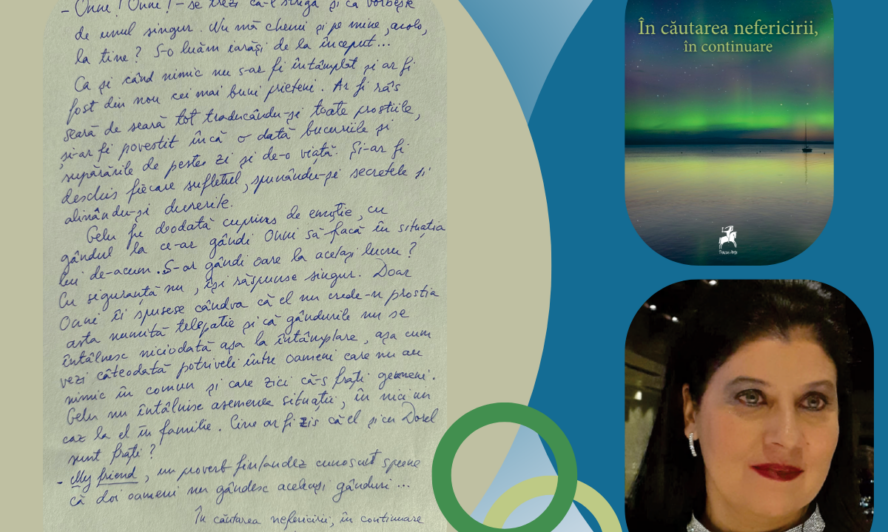 - Onne! Onne! - se trezi că-l strigă și că vorbește
de unul singur. Nu mă chemi și pe mine, acolo,
la tine? S-o luăm iarăși de la început...
Ca și când nimic nu s-ar fi întâmplat și ar fi
fost din nou cei mai buni prieteni. Ar fi râs
seară de seară tot traducându-și toate prostiile,
și-ar fi povestit încă o dată bucuriile și
supărările de peste zi și de-o viață. Și-ar fi
deschis fiecare sufletul, spunându-și secretele și
alinându-și durerile.
Gelu fu deodată cuprins de emoție, cu
gândul la ce-ar gândi Onni să facă în situația
lui de-acum. S-ar gândi oare la același lucru?
Cu siguranță nu, își răspunse singur. Doar
Onni îi spusese cândva că el nu crede-n prostia
asta numită telepatie și că gândurile nu se
întâlnesc niciodată așa la întâmplare, așa cum
vezi câteodată potriveli între oameni care nu au
nimic în comun și care zici că-s frați gemeni.
Gelu nu întâlnise asemenea situație, în nici un
caz la el în familie. Cine ar fi zis că el și cu Dorel
sunt frați?
- My friend, un proverb finlandez cunoscut spune
că doi oameni nu gândesc aceleași gânduri...
În căutarea nefericirii, în continuare
În căutarea nefericirii,
în continuare